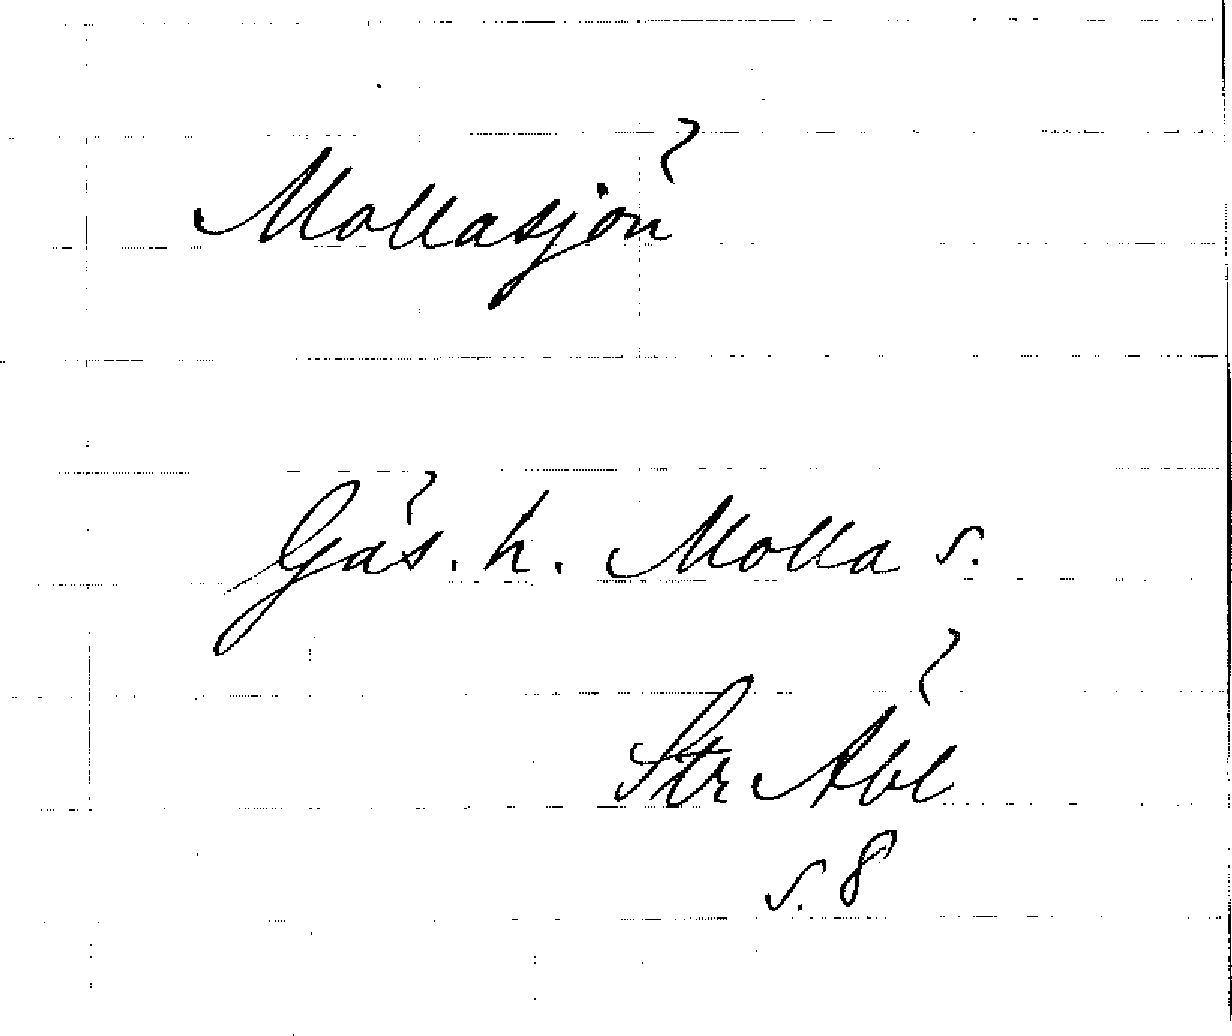 Mollasjön
Gås. h. Molla s.
Str Åbl
s. 8